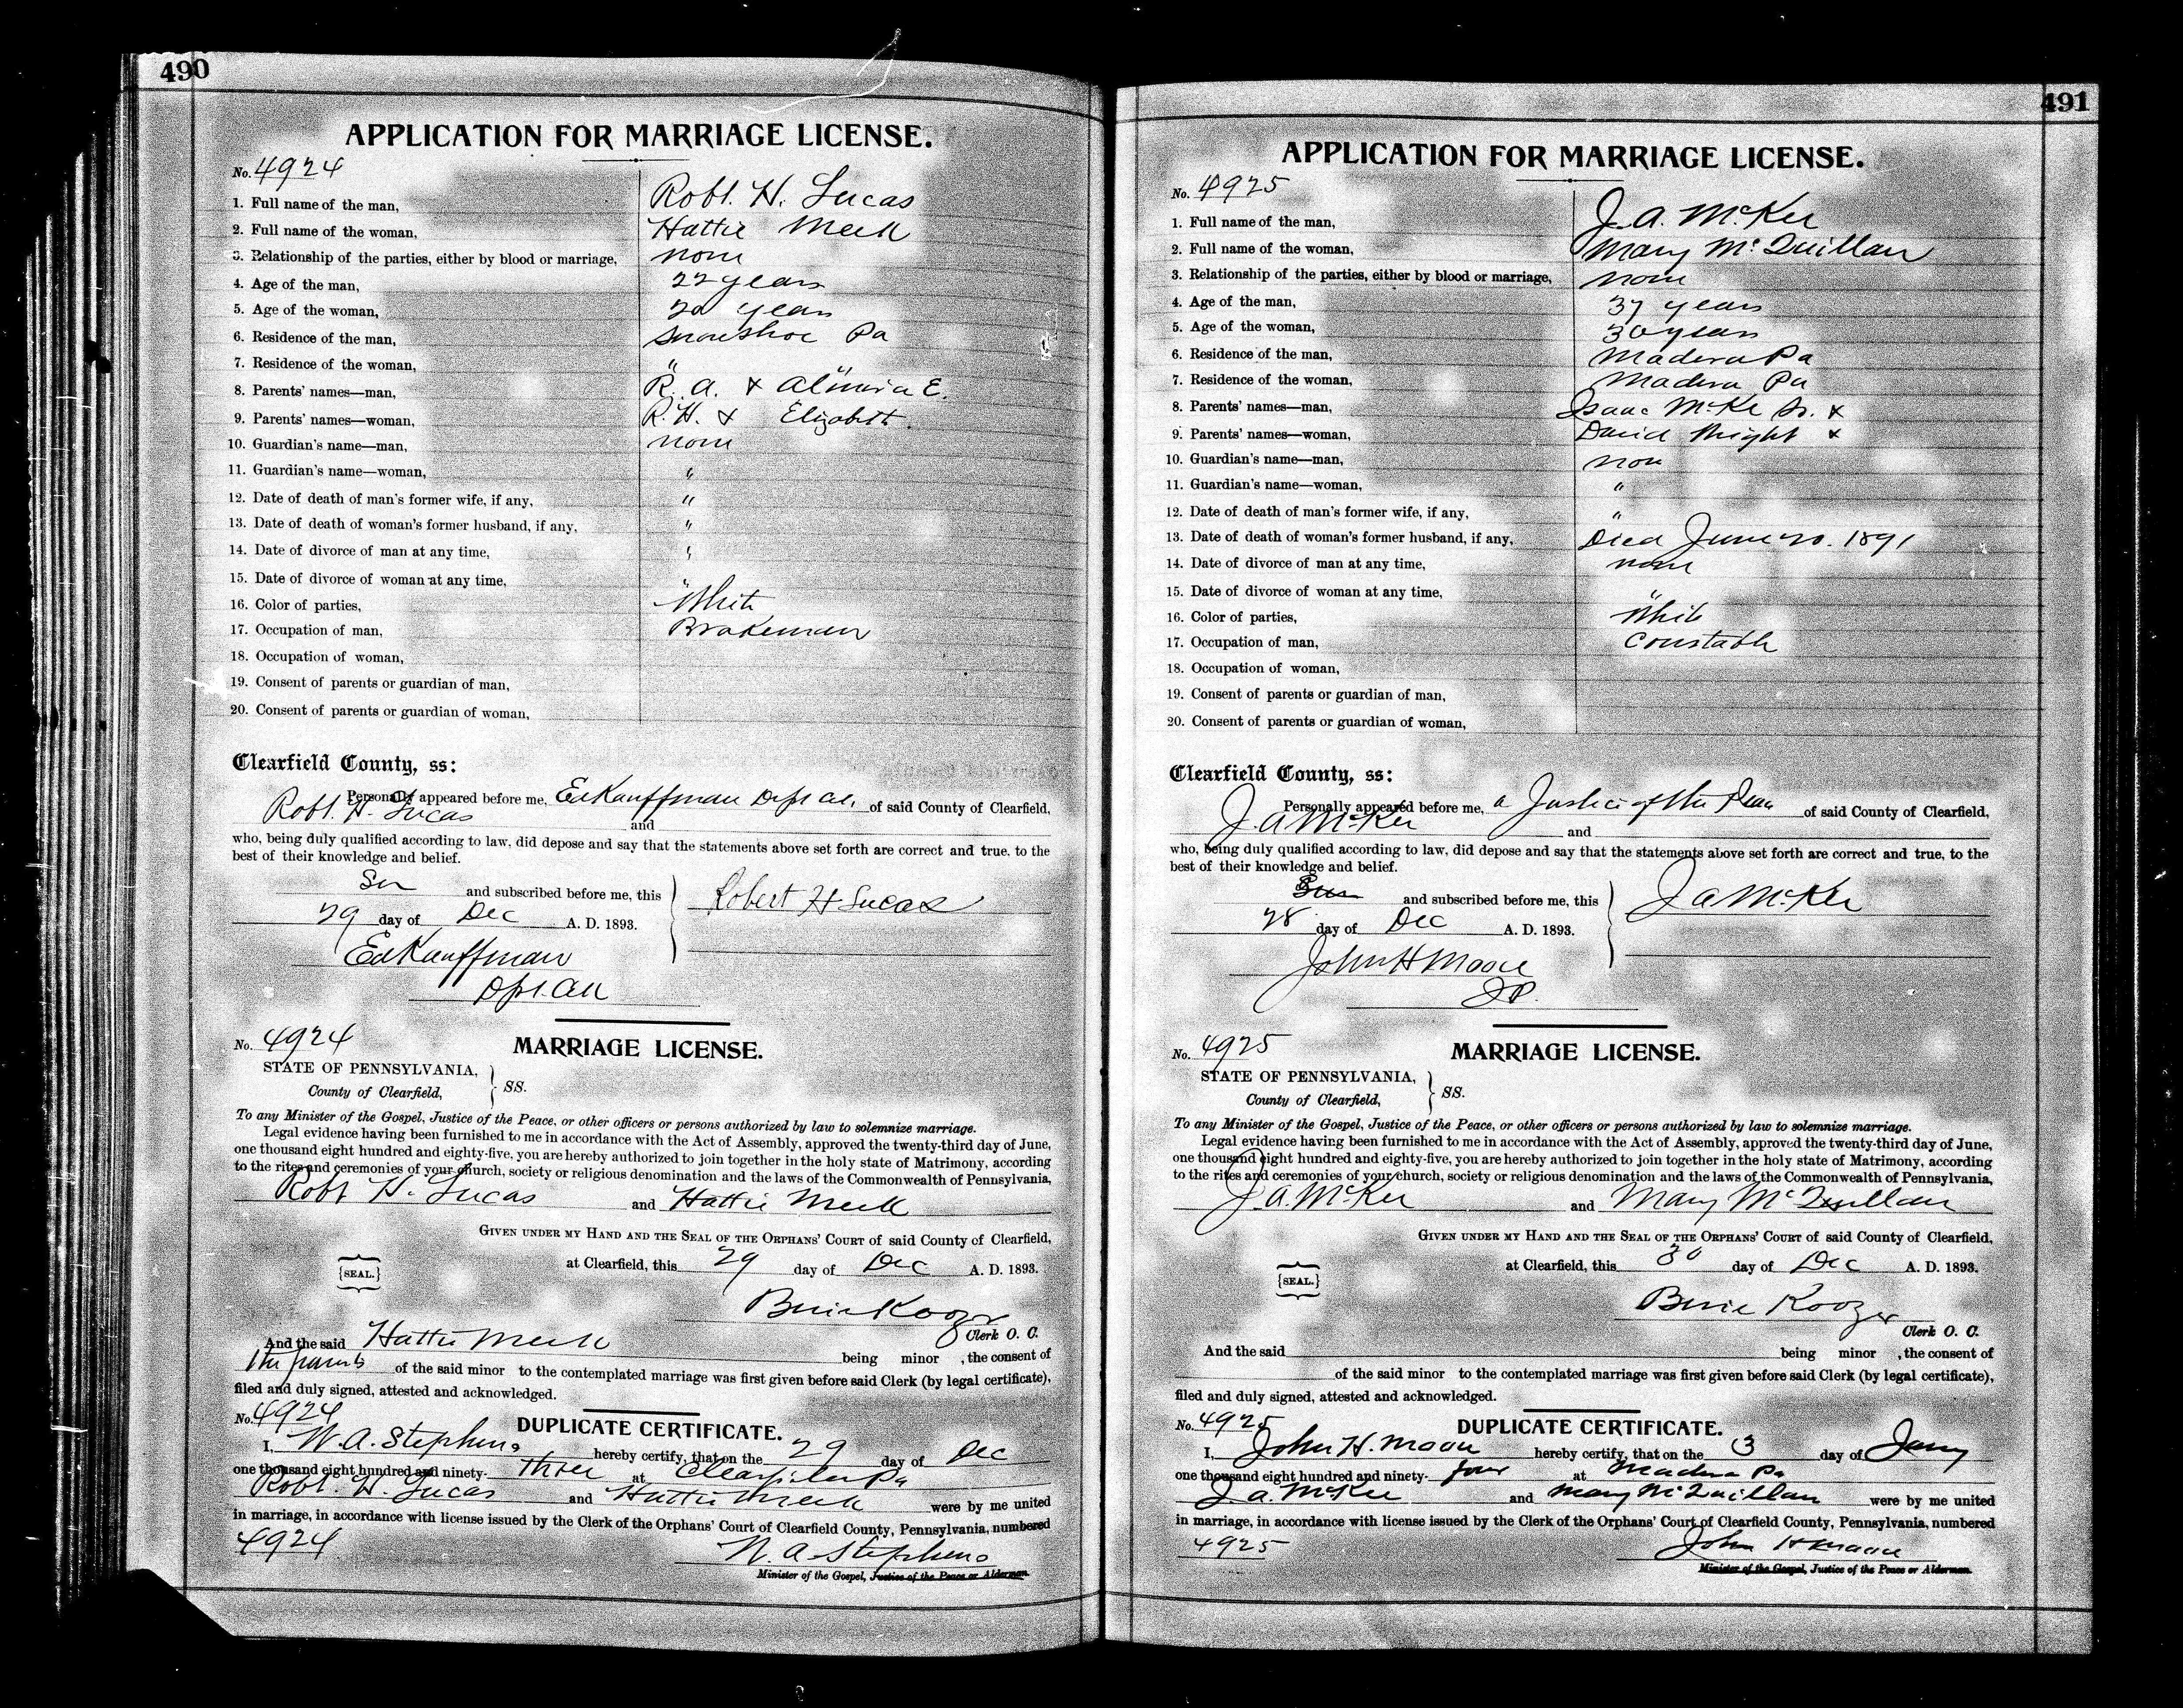 490
APPLICATION FOR MARRIAGE LICENSE.
No. 4924
1. Full name of the man, Robt. H. Lucas
2. Full name of the woman, Hattie Meek
3. Relationship of the parties, either by blood or marriage, none
4. Age of the man, 22 years
5. Age of the woman, 20 years
6. Residence of the man, Snowshoe Pa
7. Residence of the woman, " "
8. Parents' names—man, R. A. & Almira E.
9. Parents' names—woman, R. H. & Elizabeth.
10. Guardian's name—man, none
11. Guardian's name—woman, "
12. Date of death of man's former wife, if any, "
13. Date of death of woman's former husband, if any, "
14. Date of divorce of man at any time, "
15. Date of divorce of woman at any time, "
16. Color of parties, White
17. Occupation of man, Brakeman
18. Occupation of woman,
19. Consent of parents or guardian of man,
20. Consent of parents or guardian of woman,
Clearfield County, ss:
Personally appeared before me, Ed Kauffman of said County of Clearfield,
Robt. H. Lucas and
who, being duly qualified according to law, did depose and say that the statements above set forth are correct and true, to the
best of their knowledge and belief.
and subscribed before me, this
Robert H Lucas
29 day of Dec A. D. 1893.
Ed Kauffman
No. 4924
MARRIAGE LICENSE.
STATE OF PENNSYLVANIA,
County of Clearfield, } SS.
To any Minister of the Gospel, Justice of the Peace, or other officers or persons authorized by law to solemnize marriage.
Legal evidence having been furnished to me in accordance with the Act of Assembly, approved the twenty-third day of June,
one thousand eight hundred and eighty-five, you are hereby authorized to join together in the holy state of Matrimony, according
to the rites and ceremonies of your church, society or religious denomination and the laws of the Commonwealth of Pennsylvania,
Robt H. Lucas and Hattie Meek
GIVEN UNDER MY HAND AND THE SEAL OF THE ORPHANS' COURT of said County of Clearfield,
{SEAL.} at Clearfield, this 29 day of Dec A. D. 1893.
Koozer
Clerk O. C.
And the said Hattie Meek being minor , the consent of
the parents of the said minor to the contemplated marriage was first given before said Clerk (by legal certificate),
filed and duly signed, attested and acknowledged.
No. 4924
DUPLICATE CERTIFICATE.
I, W. A. Stephens hereby certify, that on the 29 day of Dec
one thousand eight hundred and ninety- three at Clearfield Pa
Robt. H. Lucas and Hattie Meek were by me united
in marriage, in accordance with license issued by the Clerk of the Orphans' Court of Clearfield County, Pennsylvania, numbered
4924 W. A. Stephens
Minister of the Gospel, Justice of the Peace or Alderman.
491
APPLICATION FOR MARRIAGE LICENSE.
No. 4925
1. Full name of the man, J. A. McKee
2. Full name of the woman, Mary McQuillan
3. Relationship of the parties, either by blood or marriage, none
4. Age of the man, 37 years
5. Age of the woman, 30 years
6. Residence of the man, Madera Pa
7. Residence of the woman, Madera Pa
8. Parents' names—man, Isaac McKee Sr. &
9. Parents' names—woman, David Wright &
10. Guardian's name—man, none
11. Guardian's name—woman, "
12. Date of death of man's former wife, if any, "
13. Date of death of woman's former husband, if any, Died June 20. 1891
14. Date of divorce of man at any time, none
15. Date of divorce of woman at any time, "
16. Color of parties, White
17. Occupation of man, Constable
18. Occupation of woman,
19. Consent of parents or guardian of man,
20. Consent of parents or guardian of woman,
Clearfield County, ss:
Personally appeared before me, a Justice of the Peace of said County of Clearfield,
J. A McKee and
who, being duly qualified according to law, did depose and say that the statements above set forth are correct and true, to the
best of their knowledge and belief.
and subscribed before me, this
J A McKee
28 day of Dec A. D. 1893.
John H Moore
JP.
No. 4925
MARRIAGE LICENSE.
STATE OF PENNSYLVANIA,
County of Clearfield, } SS.
To any Minister of the Gospel, Justice of the Peace, or other officers or persons authorized by law to solemnize marriage.
Legal evidence having been furnished to me in accordance with the Act of Assembly, approved the twenty-third day of June,
one thousand eight hundred and eighty-five, you are hereby authorized to join together in the holy state of Matrimony, according
to the rites and ceremonies of your church, society or religious denomination and the laws of the Commonwealth of Pennsylvania,
J. A. McKee and Mary McQuillan
GIVEN UNDER MY HAND AND THE SEAL OF THE ORPHANS' COURT of said County of Clearfield,
{SEAL.} at Clearfield, this 30 day of Dec A. D. 1893.
Koozer
Clerk O. C.
And the said being minor , the consent of
of the said minor to the contemplated marriage was first given before said Clerk (by legal certificate),
filed and duly signed, attested and acknowledged.
No. 4925
DUPLICATE CERTIFICATE.
I, John H. Moore hereby certify, that on the 3 day of Jany
one thousand eight hundred and ninety- four at Madera Pa
J. A. McKee and Mary McQuillan were by me united
in marriage, in accordance with license issued by the Clerk of the Orphans' Court of Clearfield County, Pennsylvania, numbered
4925 John H Moore
Minister of the Gospel, Justice of the Peace or Alderman.